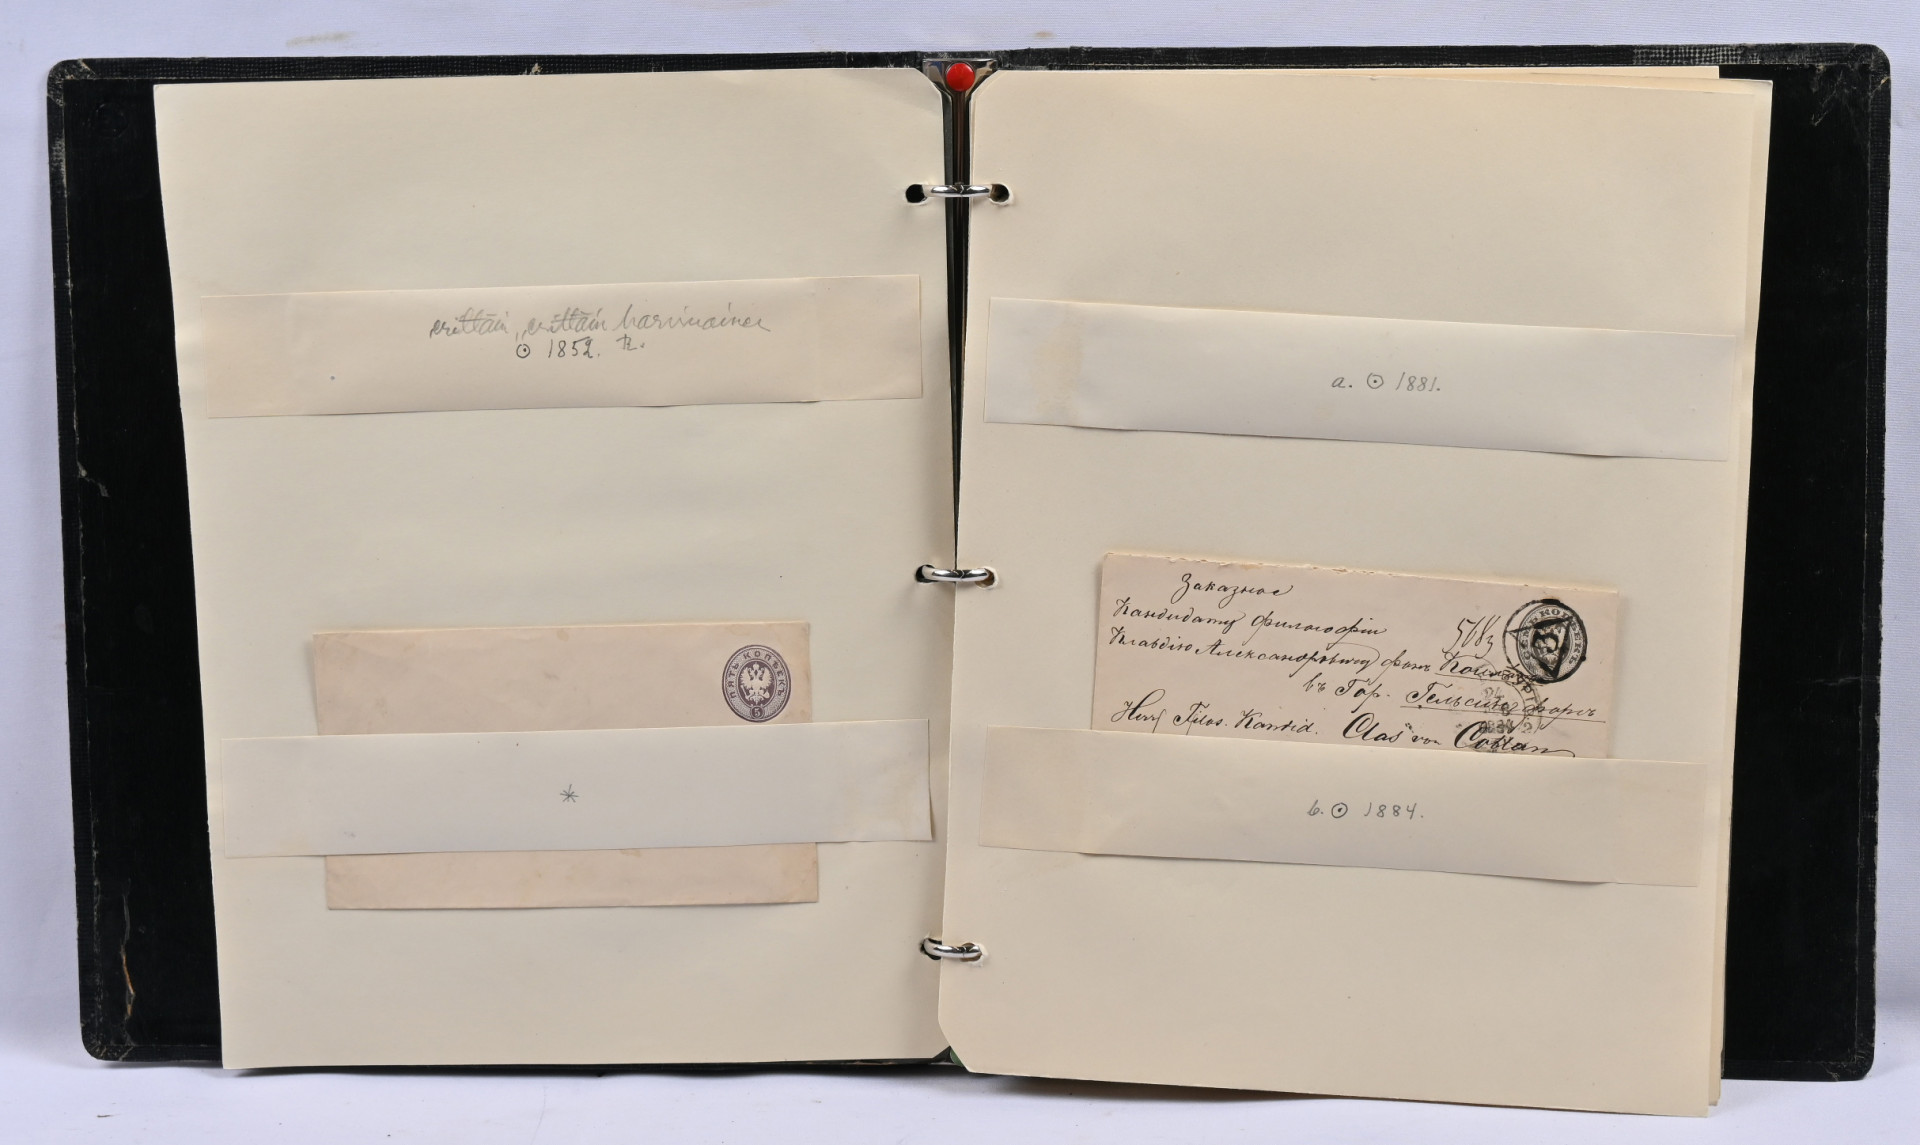 erittäin, erittäin harvinainen
⊙ 1852.
ПЯТЬ КОПѢЕКЪ
5
*
a. ⊙ 1881.
Заказное
Кандидату философіи
Клавдію Александровичу фонъ
въ Гор. Гельсингфорсъ
Herr Filos. Kandid. Clas von Collan
СЕМЬ КОПѢЕКЪ
b. ⊙ 1884.